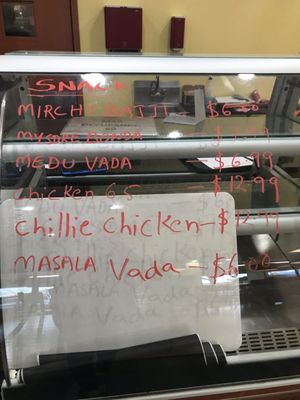 SNACK
MIRCHI BAJJI - $6.50
MYSORE BONDA - $7.99
MEDU VADA - $6.99
chicken 65 - $12.99
chillie chicken - $12.99
MASALA Vada - $6.00